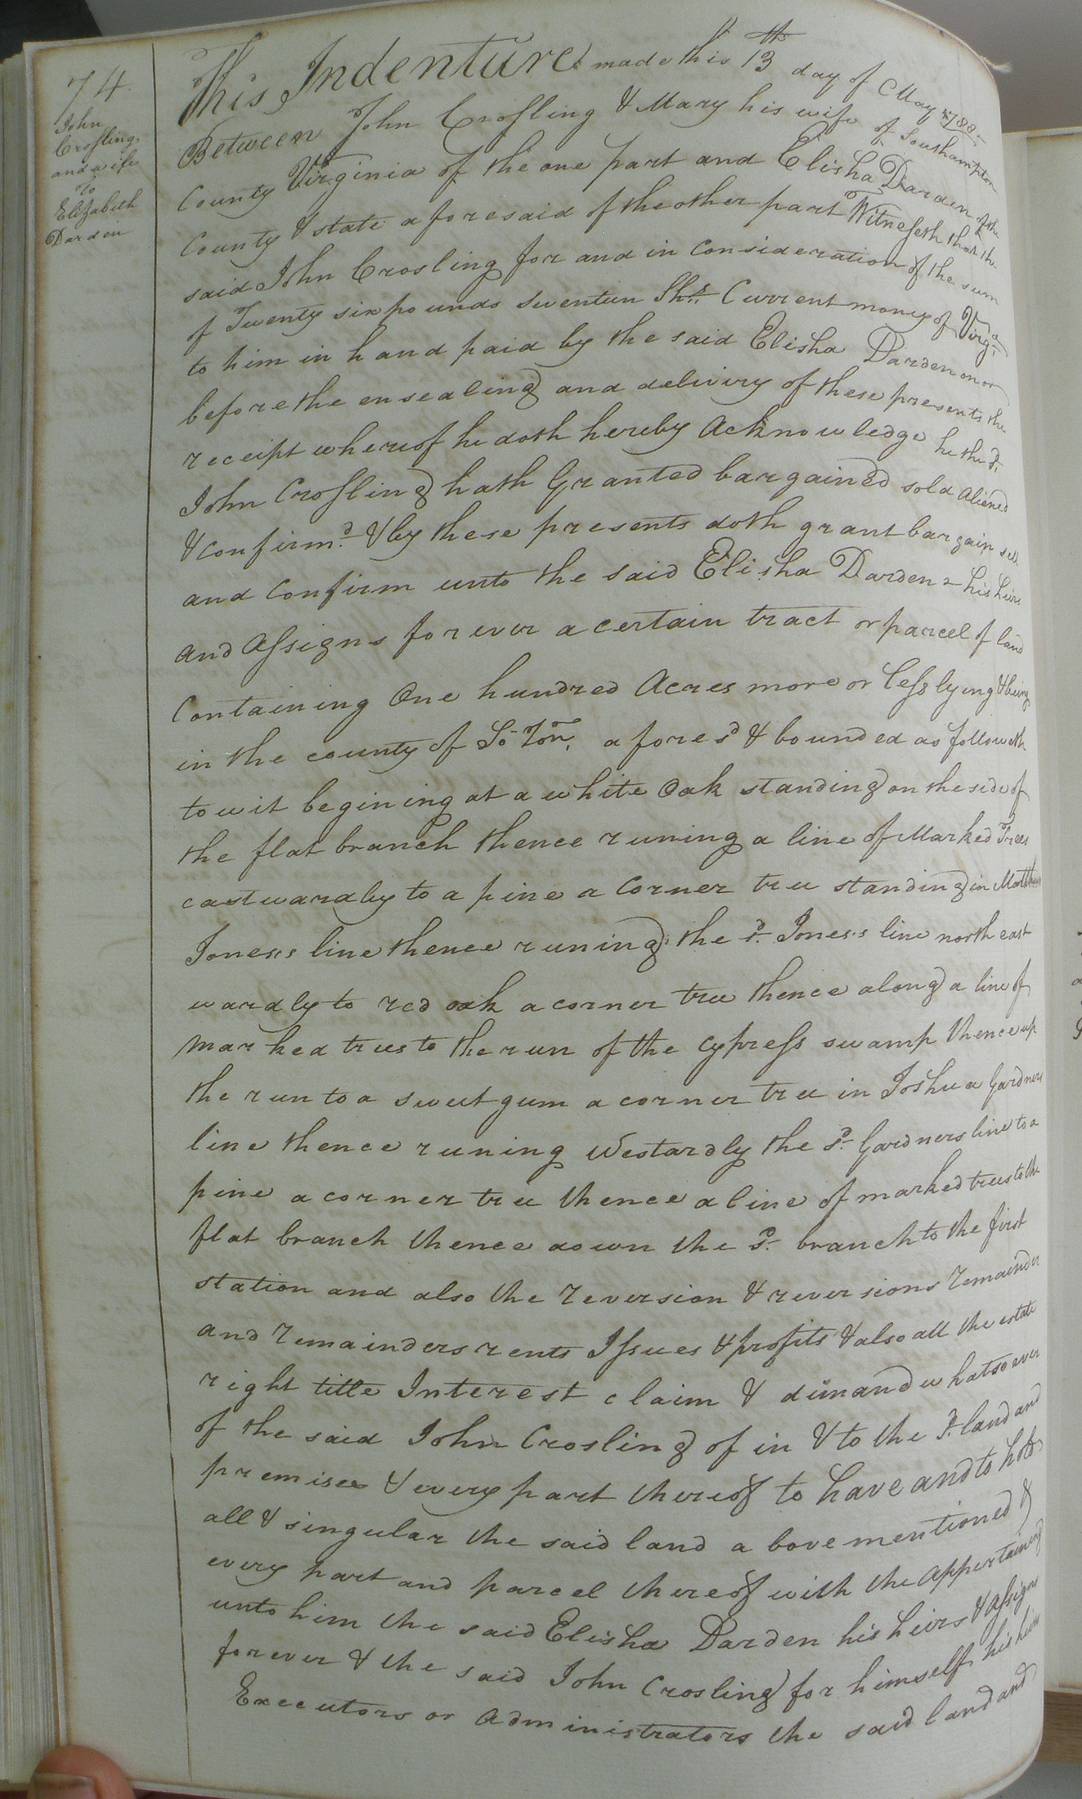 74.
John
Crosling.
and wife
To
Elizabeth
Darden
This Indenture made this 13th day of May 1788
Between John Crosling & Mary his wife of Southampton
County Virginia of the one part and Elisha Darden of the
County & state aforesaid of the other part Witnesseth that the
said John Crosling for and in consideration of the sum
of Twenty six pounds seventeen Shs. Current money of Virga.
to him in hand paid by the said Elisha Darden on or
before the ensealing and delivery of these presents the
receipt whereof he doth hereby Acknowledge he the sd.
John Crosling hath Granted bargained sold aliened
& confirmd. & by these presents doth grant bargain sell
and Confirm unto the said Elisha Darden & his heirs
and Assigns forever a certain tract or parcel of land
Containing One hundred Acres more or less lying & being
in the county of So-Ton, afores'd & bounded as followeth
to wit begining at a white Oak standing on the side of
the flat branch thence runing a line of Marked Trees
eastwardly to a pine a Corner tree standing in
Jones's line thence runing the sd. Jones's line north east
wardly to red oak a corner tree thence along a line of
marked trees to the run of the cypress swamp thence up
the run to a sweet gum a corner tree in Joshua Gardners
line thence runing Westardly the sd. Gardners line to a
pine a corner tree thence a line of marked trees to the
flat branch thence down the sd. branch to the first
station and also the reversion & reversions remainder
and remainders rents Issues & profits & also all the estate
right title Interest claim & dimand whatsoever
of the said John Crosling of in & to the sd. land and
premises & every part thereof to have and to hold
all & singular the said land a bove mentioned &
every part and parcel thereof with the appertaining
unto him the said Elisha Darden his heirs & assigns
forever & the said John Crosling for himself his heirs
Executors or Administrators the said land and